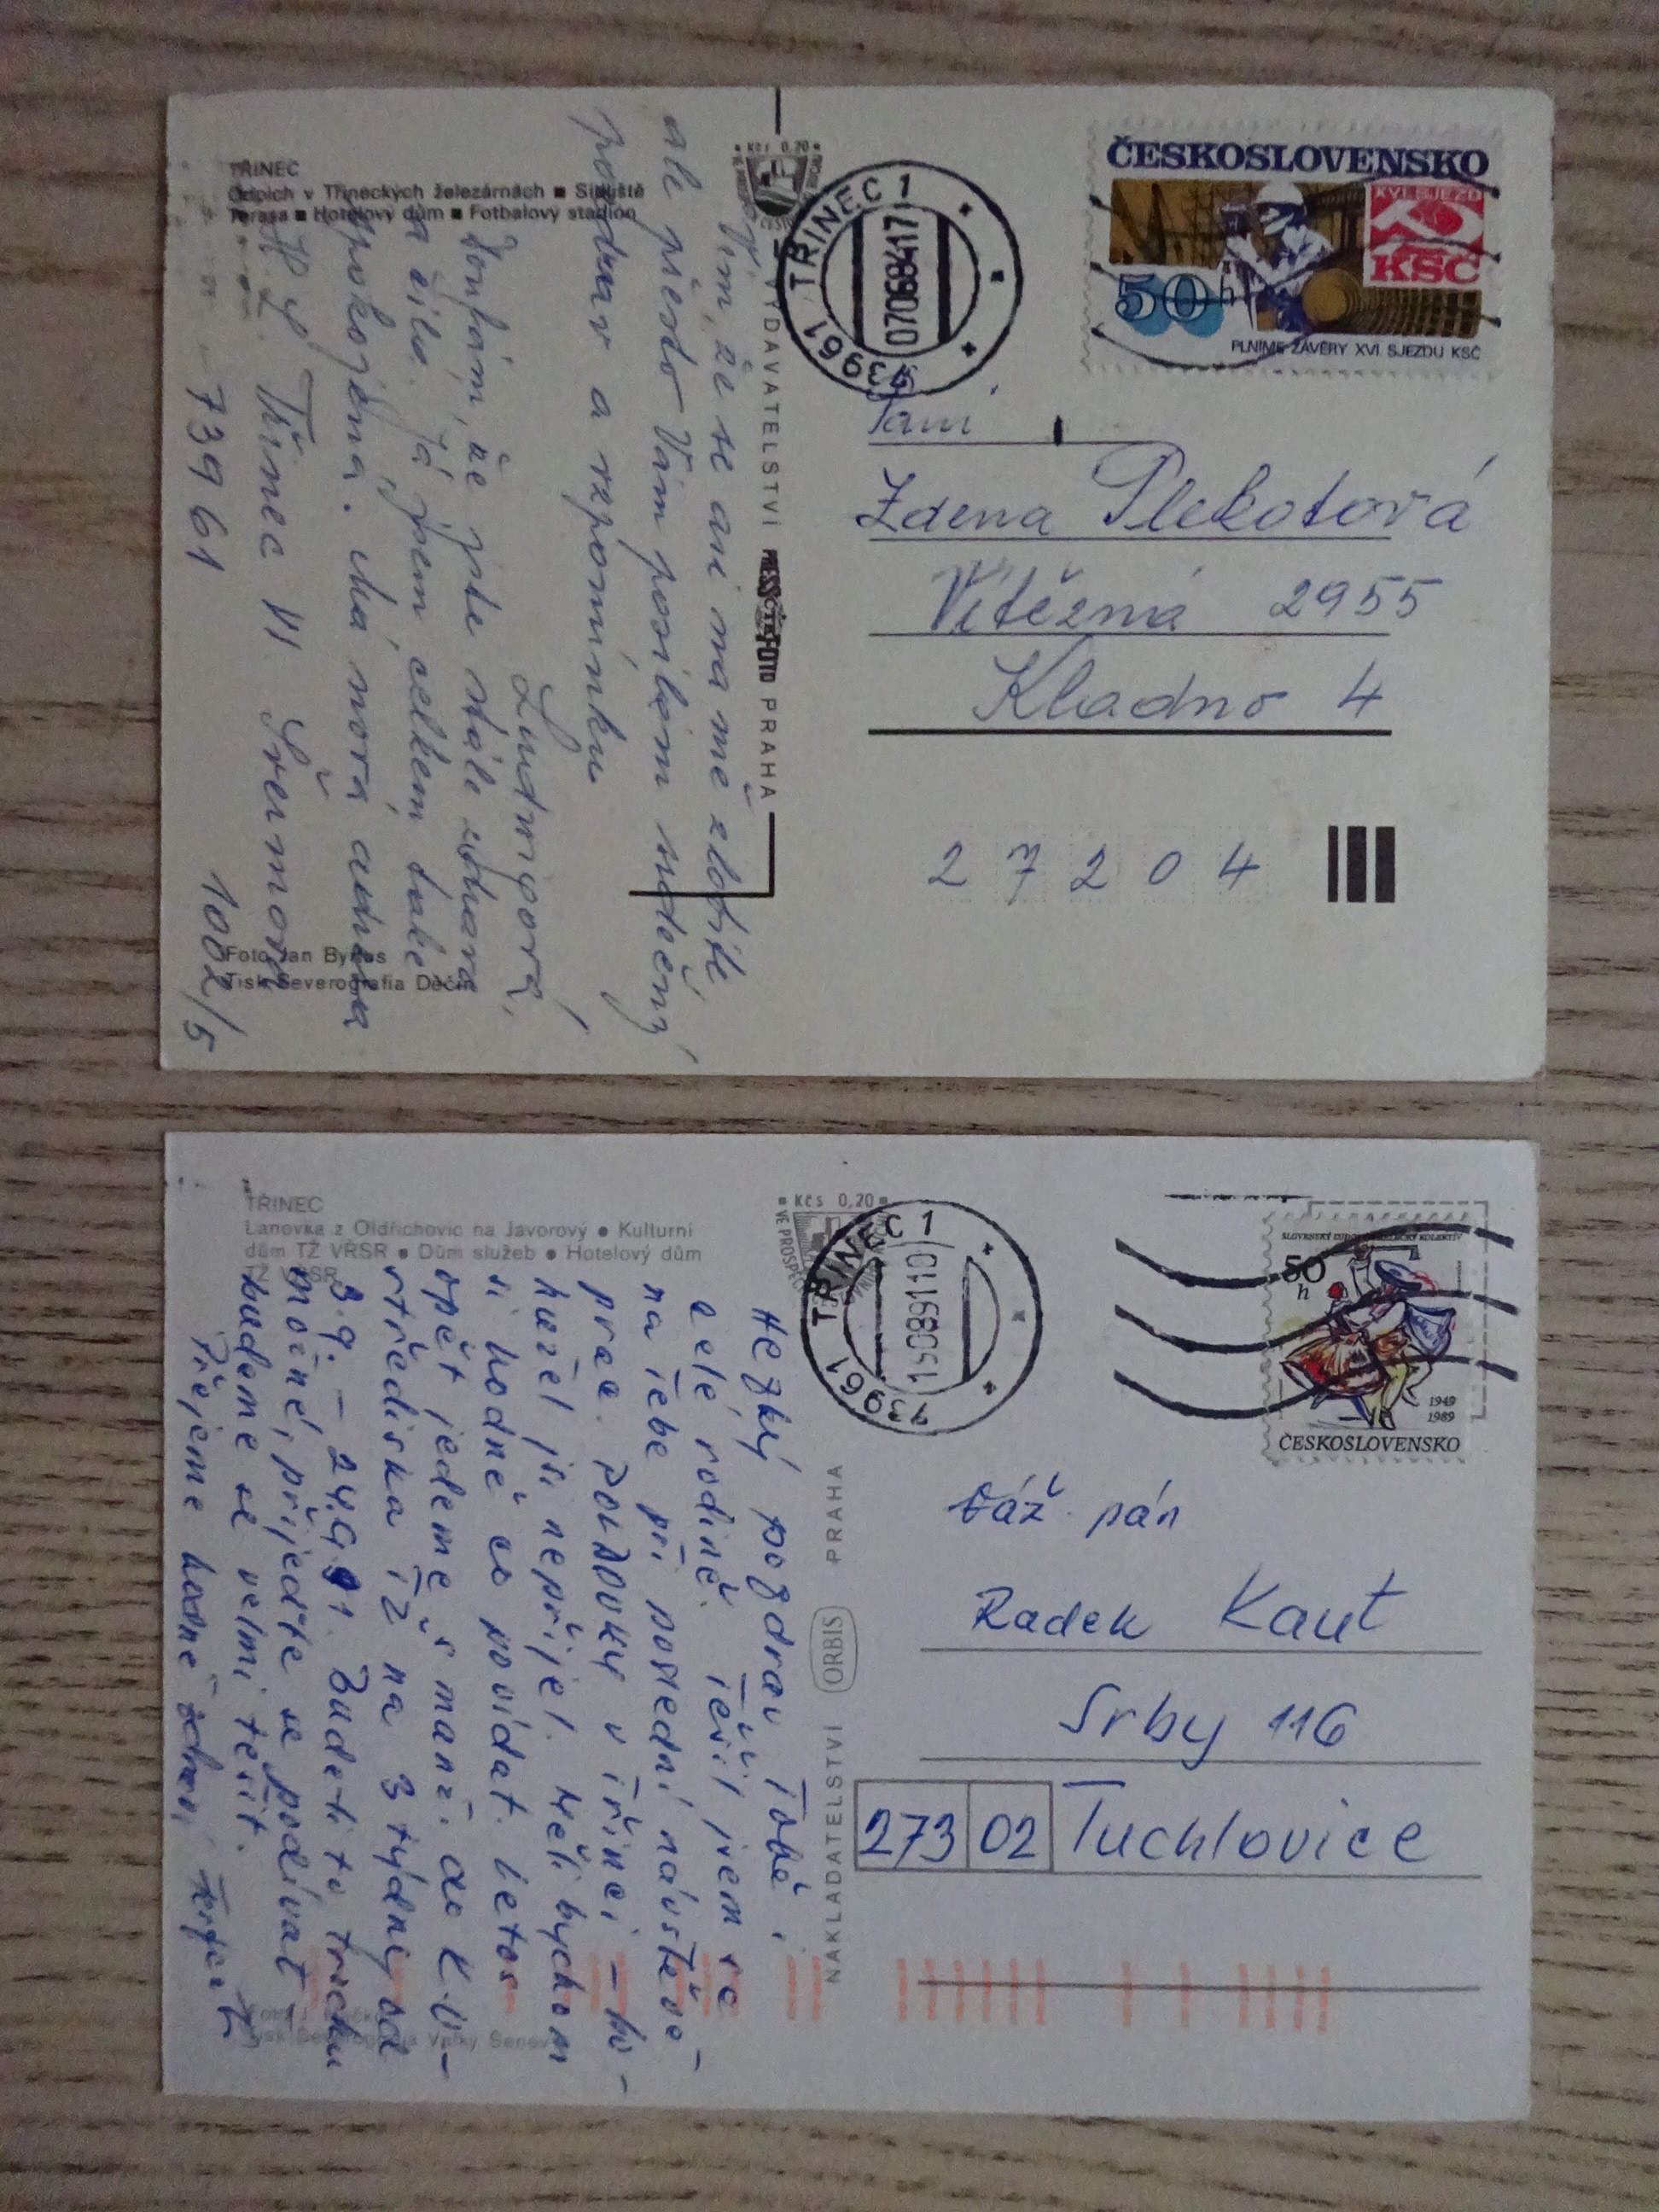 TŘINEC
Odpich v Třineckých železárnách ■ Sídliště
Terasa ■ Hotelový dům ■ Fotbalový stadión
Kčs 0,20
Vím, že se ani na mě zlobíte,
ale přesto Vám posílám srdečný
pozdrav a vzpomínku
Ludmila,
Doufám, že jste stále zdravá
a čilá. Já jsem celkem také
spokojená. Má nová adresa
Třinec VI.
739 61 1002/5
Foto Jan Byrtus
Tisk Severografia Děčín
VYDAVATELSTVÍ PRESSFOTO PRAHA
TŘINEC 1
739 61
070684 17
ČESKOSLOVENSKO
XVI. SJEZD
KSČ
50 h
PLNÍME ZÁVĚRY XVI. SJEZDU KSČ
Paní
Zdena Plekotová
Vítězná 2955
Kladno 4
2 7 2 0 4
TŘINEC
Lanovka z Oldřichovic na Javorový ● Kulturní
dům TŽ VŘSR ● Dům služeb ● Hotelový dům
TŽ VŘSR
Kčs 0,20
VE PROSPĚCH
Hezký pozdrav Tobě i
celé rodině. Těšil jsem se
na Tebe při poslední návštěvě
prac. v Třinci – bo-
hužel jsi nepřijel. Měli bychom
si hodně co povídat. Letos
opět jedeme s manž. do
střediska TŽ na 3 týdny od
3.9. – 24.9. Bude-li to trochu
možné, přijeďte se podívat –
budeme se velmi těšit.
Přejeme hodně zdraví
Tisk Severografia Velký Šenov
NAKLADATELSTVÍ ORBIS PRAHA
TŘINEC 1
739 61
150891 10
SLOVENSKÝ ĽUDOVÝ UMELECKÝ KOLEKTÍV
50 h
1949
1989
ČESKOSLOVENSKO
Váž. pán
Radek Kaut
Srby 116
273 02 Tuchlovice